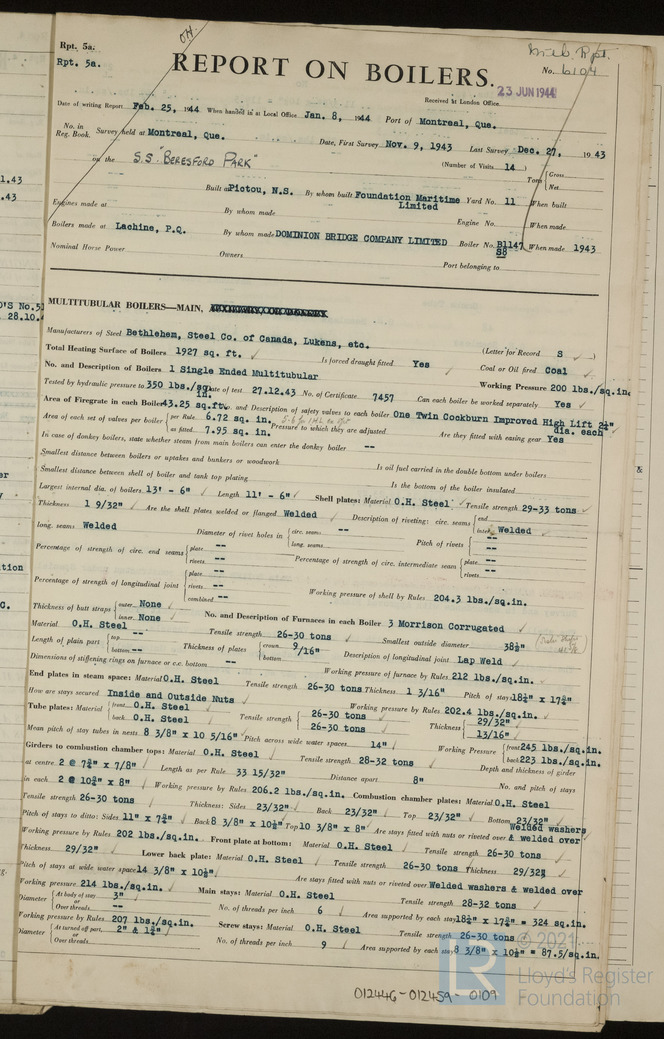 O.H.
Mtl Rpt.
Rpt. 5a.
Rpt. 5a.
No. 6104
REPORT ON BOILERS.
23 JUN 1944
Received at London Office
Date of writing Report Feb. 25, 1944 When handed in at Local Office Jan. 8, 1944 Port of Montreal, Que.
No. in Reg. Book. Survey held at Montreal, Que. Date, First Survey Nov. 9, 1943 Last Survey Dec. 27, 1943
on the S.S "BERESFORD PARK" (Number of Visits 14) Tons { Gross Net
Built at Pictou, N.S. By whom built Foundation Maritime Limited Yard No. 11 When built
Engines made at By whom made Engine No. When made
Boilers made at Lachine, P.Q. By whom made DOMINION BRIDGE COMPANY LIMITED Boiler No. B1147 S8 When made 1943
Nominal Horse Power Owners Port belonging to
MULTITUBULAR BOILERS—MAIN,
Manufacturers of Steel Bethlehem, Steel Co. of Canada, Lukens, etc. (Letter for Record S )
Total Heating Surface of Boilers 1927 sq. ft. Is forced draught fitted Yes Coal or Oil fired Coal
No. and Description of Boilers 1 Single Ended Multitubular Working Pressure 200 lbs./sq.in.
Tested by hydraulic pressure to 350 lbs./sq. in. Date of test 27.12.43 No. of Certificate 7457 Can each boiler be worked separately Yes
Area of Firegrate in each Boiler 43.25 sq.ft. No. and Description of safety valves to each boiler One Twin Cockburn Improved High Lift 2½" dia. each
Area of each set of valves per boiler { per Rule 6.72 sq. in. as fitted 7.95 sq. in. Pressure to which they are adjusted Are they fitted with easing gear Yes
In case of donkey boilers, state whether steam from main boilers can enter the donkey boiler --
Smallest distance between boilers or uptakes and bunkers or woodwork Is oil fuel carried in the double bottom under boilers
Smallest distance between shell of boiler and tank top plating Is the bottom of the boiler insulated
Largest internal dia. of boilers 13' - 6" Length 11' - 6" Shell plates: Material O.H. Steel Tensile strength 29-33 tons
Thickness 1 9/32" Are the shell plates welded or flanged Welded Description of riveting: circ. seams { end inter. Welded
long. seams Welded Diameter of rivet holes in { circ. seams -- long. seams -- Pitch of rivets { -- --
Percentage of strength of circ. end seams { plate -- rivets -- Percentage of strength of circ. intermediate seam { plate -- rivets --
Percentage of strength of longitudinal joint { plate -- rivets -- combined -- Working pressure of shell by Rules 204.3 lbs./sq.in.
Thickness of butt straps { outer None inner None No. and Description of Furnaces in each Boiler 3 Morrison Corrugated
Material O.H. Steel Tensile strength 26-30 tons Smallest outside diameter 38½"
Length of plain part { top -- bottom -- Thickness of plates { crown bottom 9/16" Description of longitudinal joint Lap Weld
Dimensions of stiffening rings on furnace or c.c. bottom -- Working pressure of furnace by Rules 212 lbs./sq.in.
End plates in steam space: Material O.H. Steel Tensile strength 26-30 tons Thickness 1 3/16" Pitch of stays 18¼" x 17¾"
How are stays secured Inside and Outside Nuts Working pressure by Rules 202.4 lbs./sq.in.
Tube plates: Material { front O.H. Steel back O.H. Steel Tensile strength { 26-30 tons 26-30 tons Thickness { 29/32" 13/16"
Mean pitch of stay tubes in nests 8 3/8" x 10 5/16" Pitch across wide water spaces 14" Working Pressure { front 245 lbs./sq.in. back 223 lbs./sq.in.
Girders to combustion chamber tops: Material O.H. Steel Tensile strength 28-32 tons Depth and thickness of girder
at centre 2 @ 7¾" x 7/8" Length as per Rule 33 15/32" Distance apart 8" No. and pitch of stays
in each 2 @ 10¾" x 8" Working pressure by Rules 206.2 lbs./sq.in. Combustion chamber plates: Material O.H. Steel
Tensile strength 26-30 tons Thickness: Sides 23/32" Back 23/32" Top 23/32" Bottom 23/32"
Pitch of stays to ditto: Sides 11" x 7¾" Back 8 3/8" x 10½" Top 10 3/8" x 8" Are stays fitted with nuts or riveted over Welded washers & welded over
Working pressure by Rules 202 lbs./sq.in. Front plate at bottom: Material O.H. Steel Tensile strength 26-30 tons
Thickness 29/32" Lower back plate: Material O.H. Steel Tensile strength 26-30 tons Thickness 29/32"
Pitch of stays at wide water space 14 3/8" x 10½" Are stays fitted with nuts or riveted over Welded washers & welded over
Working pressure 214 lbs./sq.in. Main stays: Material O.H. Steel Tensile strength 28-32 tons
Diameter { At body of stay 3" or Over threads -- No. of threads per inch 6 Area supported by each stay 18¼" x 17¾" = 324 sq.in.
Working pressure by Rules 207 lbs./sq.in. Screw stays: Material O.H. Steel Tensile strength 26-30 tons
Diameter { At turned off part, 2" & 1¾" or Over threads No. of threads per inch 9 Area supported by each stay 8 3/8" x 10½" = 87.5/sq.in.
012446-012459-0109
© 2021
LR
Lloyd's Register
Foundation